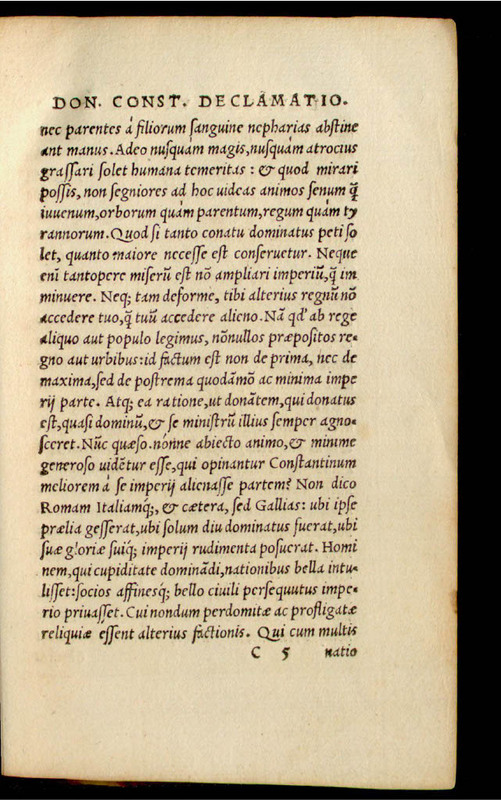 DON. CONST. DECLAMATIO.
nec parentes á filiorum sanguine nepharias abstine
ant manus. Adeo nusquàm magis, nusquàm atrocius
grassari solet humana temeritas : & quod mirari
possis, non segniores ad hoc uideas animos senum q̃
iuuenum, orborum quàm parentum, regum quàm ty
rannorum. Quod si tanto conatu dominatus peti so
let, quanto maiore necesse est conseruetur. Neque
enĩ tantopere miserũ est nõ ampliari imperiũ, q̃ im
minuere. Neq; tam deforme, tibi alterius regnũ nõ
accedere tuo, q̃ tuũ accedere alieno. Nã qd' ab rege
aliquo aut populo legimus, nõnullos præpositos re-
gno aut urbibus: id factum est non de prima, nec de
maxima, sed de postrema quodãmõ ac minima impe
rij parte. Atq; ea ratione, ut donãtem, qui donatus
est, quasi dominũ, & se ministrũ illius semper agno-
sceret. Nũc quæso. nónne abiecto animo, & minime
generoso uidẽtur esse, qui opinantur Constantinum
meliorem á se imperij alienasse partem? Non dico
Romam Italiamq;, & cætera, sed Gallias: ubi ipse
prælia gesserat, ubi solum diu dominatus fuerat, ubi
suæ gloriæ suiq; imperij rudimenta posuerat. Homi
nem, qui cupiditate dominãdi, nationibus bella intu-
lisset: socios affinesq; bello ciuili persequutus impe-
rio priuasset. Cui nondum perdomitæ ac profligatæ
reliquiæ essent alterius factionis. Qui cum multis
C 5 natio